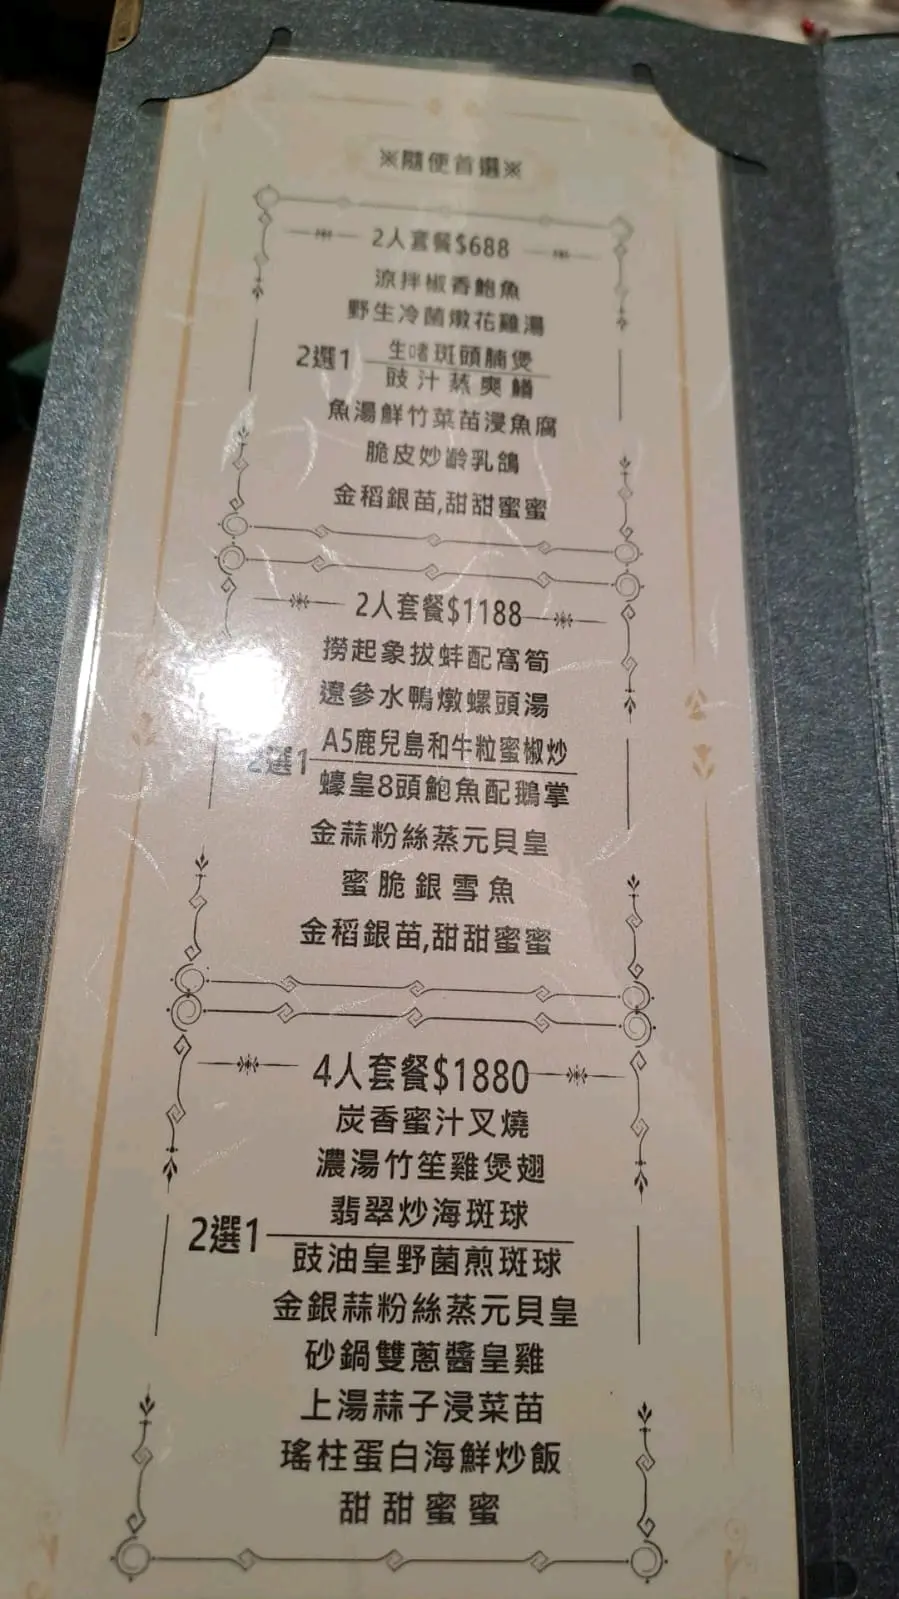 ※隨便首選※
2人套餐$688
涼拌椒香鮑魚
野生冷菌燉花雞湯
生啫斑頭腩煲
2選1
豉汁蒸爽鱔
魚湯鮮竹菜苗浸魚腐
脆皮妙齡乳鴿
金稻銀苗,甜甜蜜蜜
2人套餐$1188
撈起象拔蚌配窩筍
遼參水鴨燉螺頭湯
A5鹿兒島和牛粒蜜椒炒
2選1
蠔皇8頭鮑魚配鵝掌
金蒜粉絲蒸元貝皇
蜜脆銀雪魚
金稻銀苗,甜甜蜜蜜
4人套餐$1880
炭香蜜汁叉燒
濃湯竹笙雞煲翅
翡翠炒海斑球
2選1
豉油皇野菌煎斑球
金銀蒜粉絲蒸元貝皇
砂鍋雙蔥醬皇雞
上湯蒜子浸菜苗
瑤柱蛋白海鮮炒飯
甜甜蜜蜜